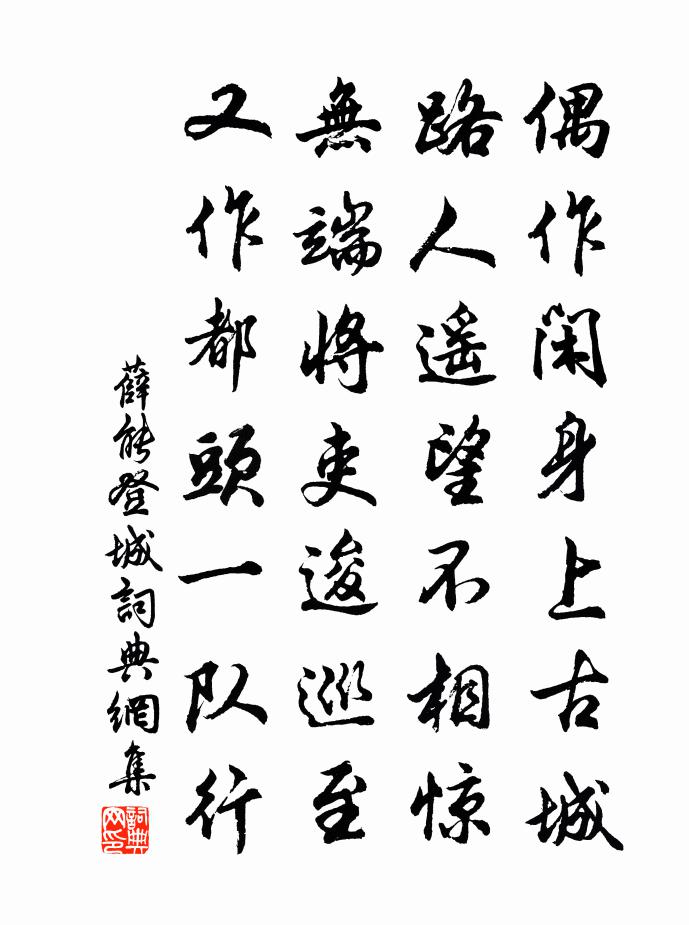 偶作闲身上古城
路人遥望不相惊
無端將吏逡巡至
又作都頭一队行
薛能登城詞典網集
詞典网印